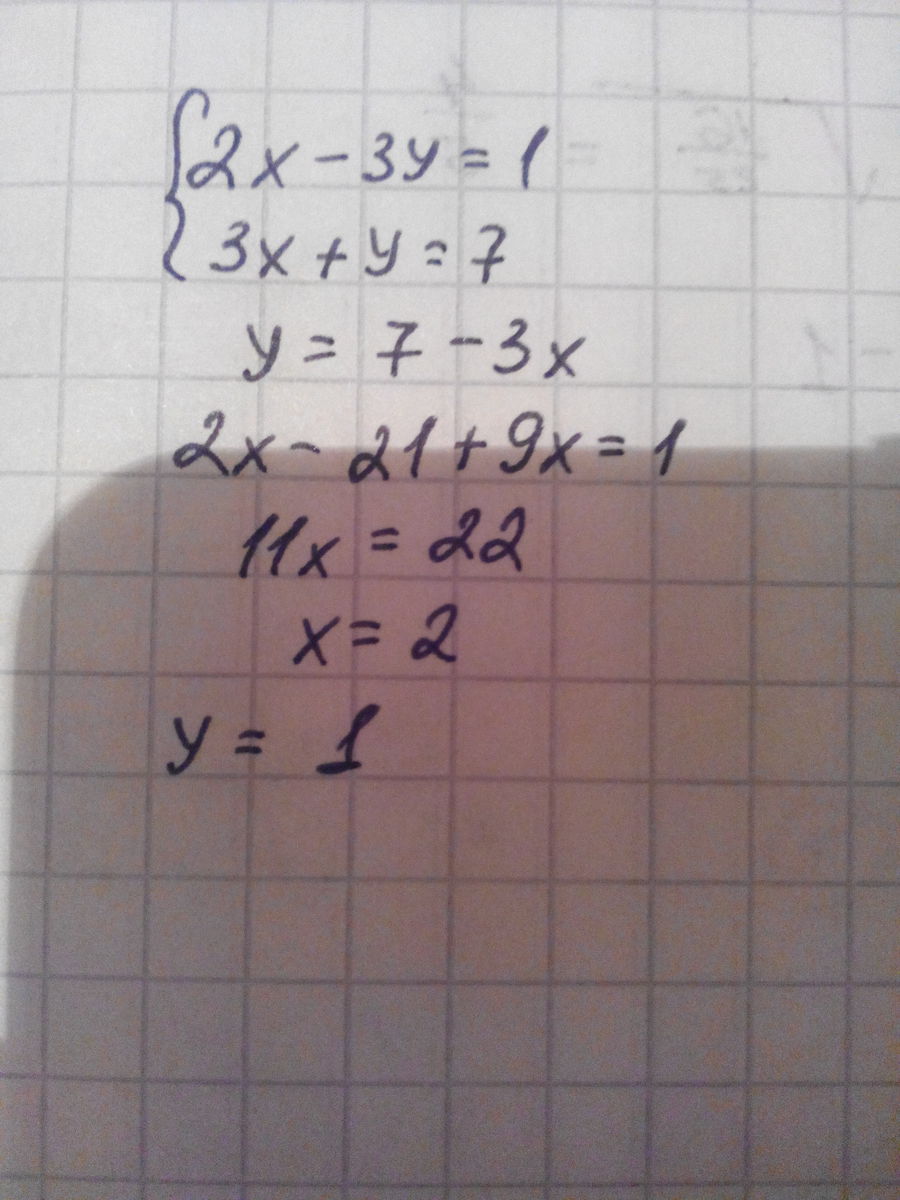 {2x - 3y = 1
3x + y = 7
y = 7 - 3x
2x - 21 + 9x = 1
11x = 22
x = 2
y = 1